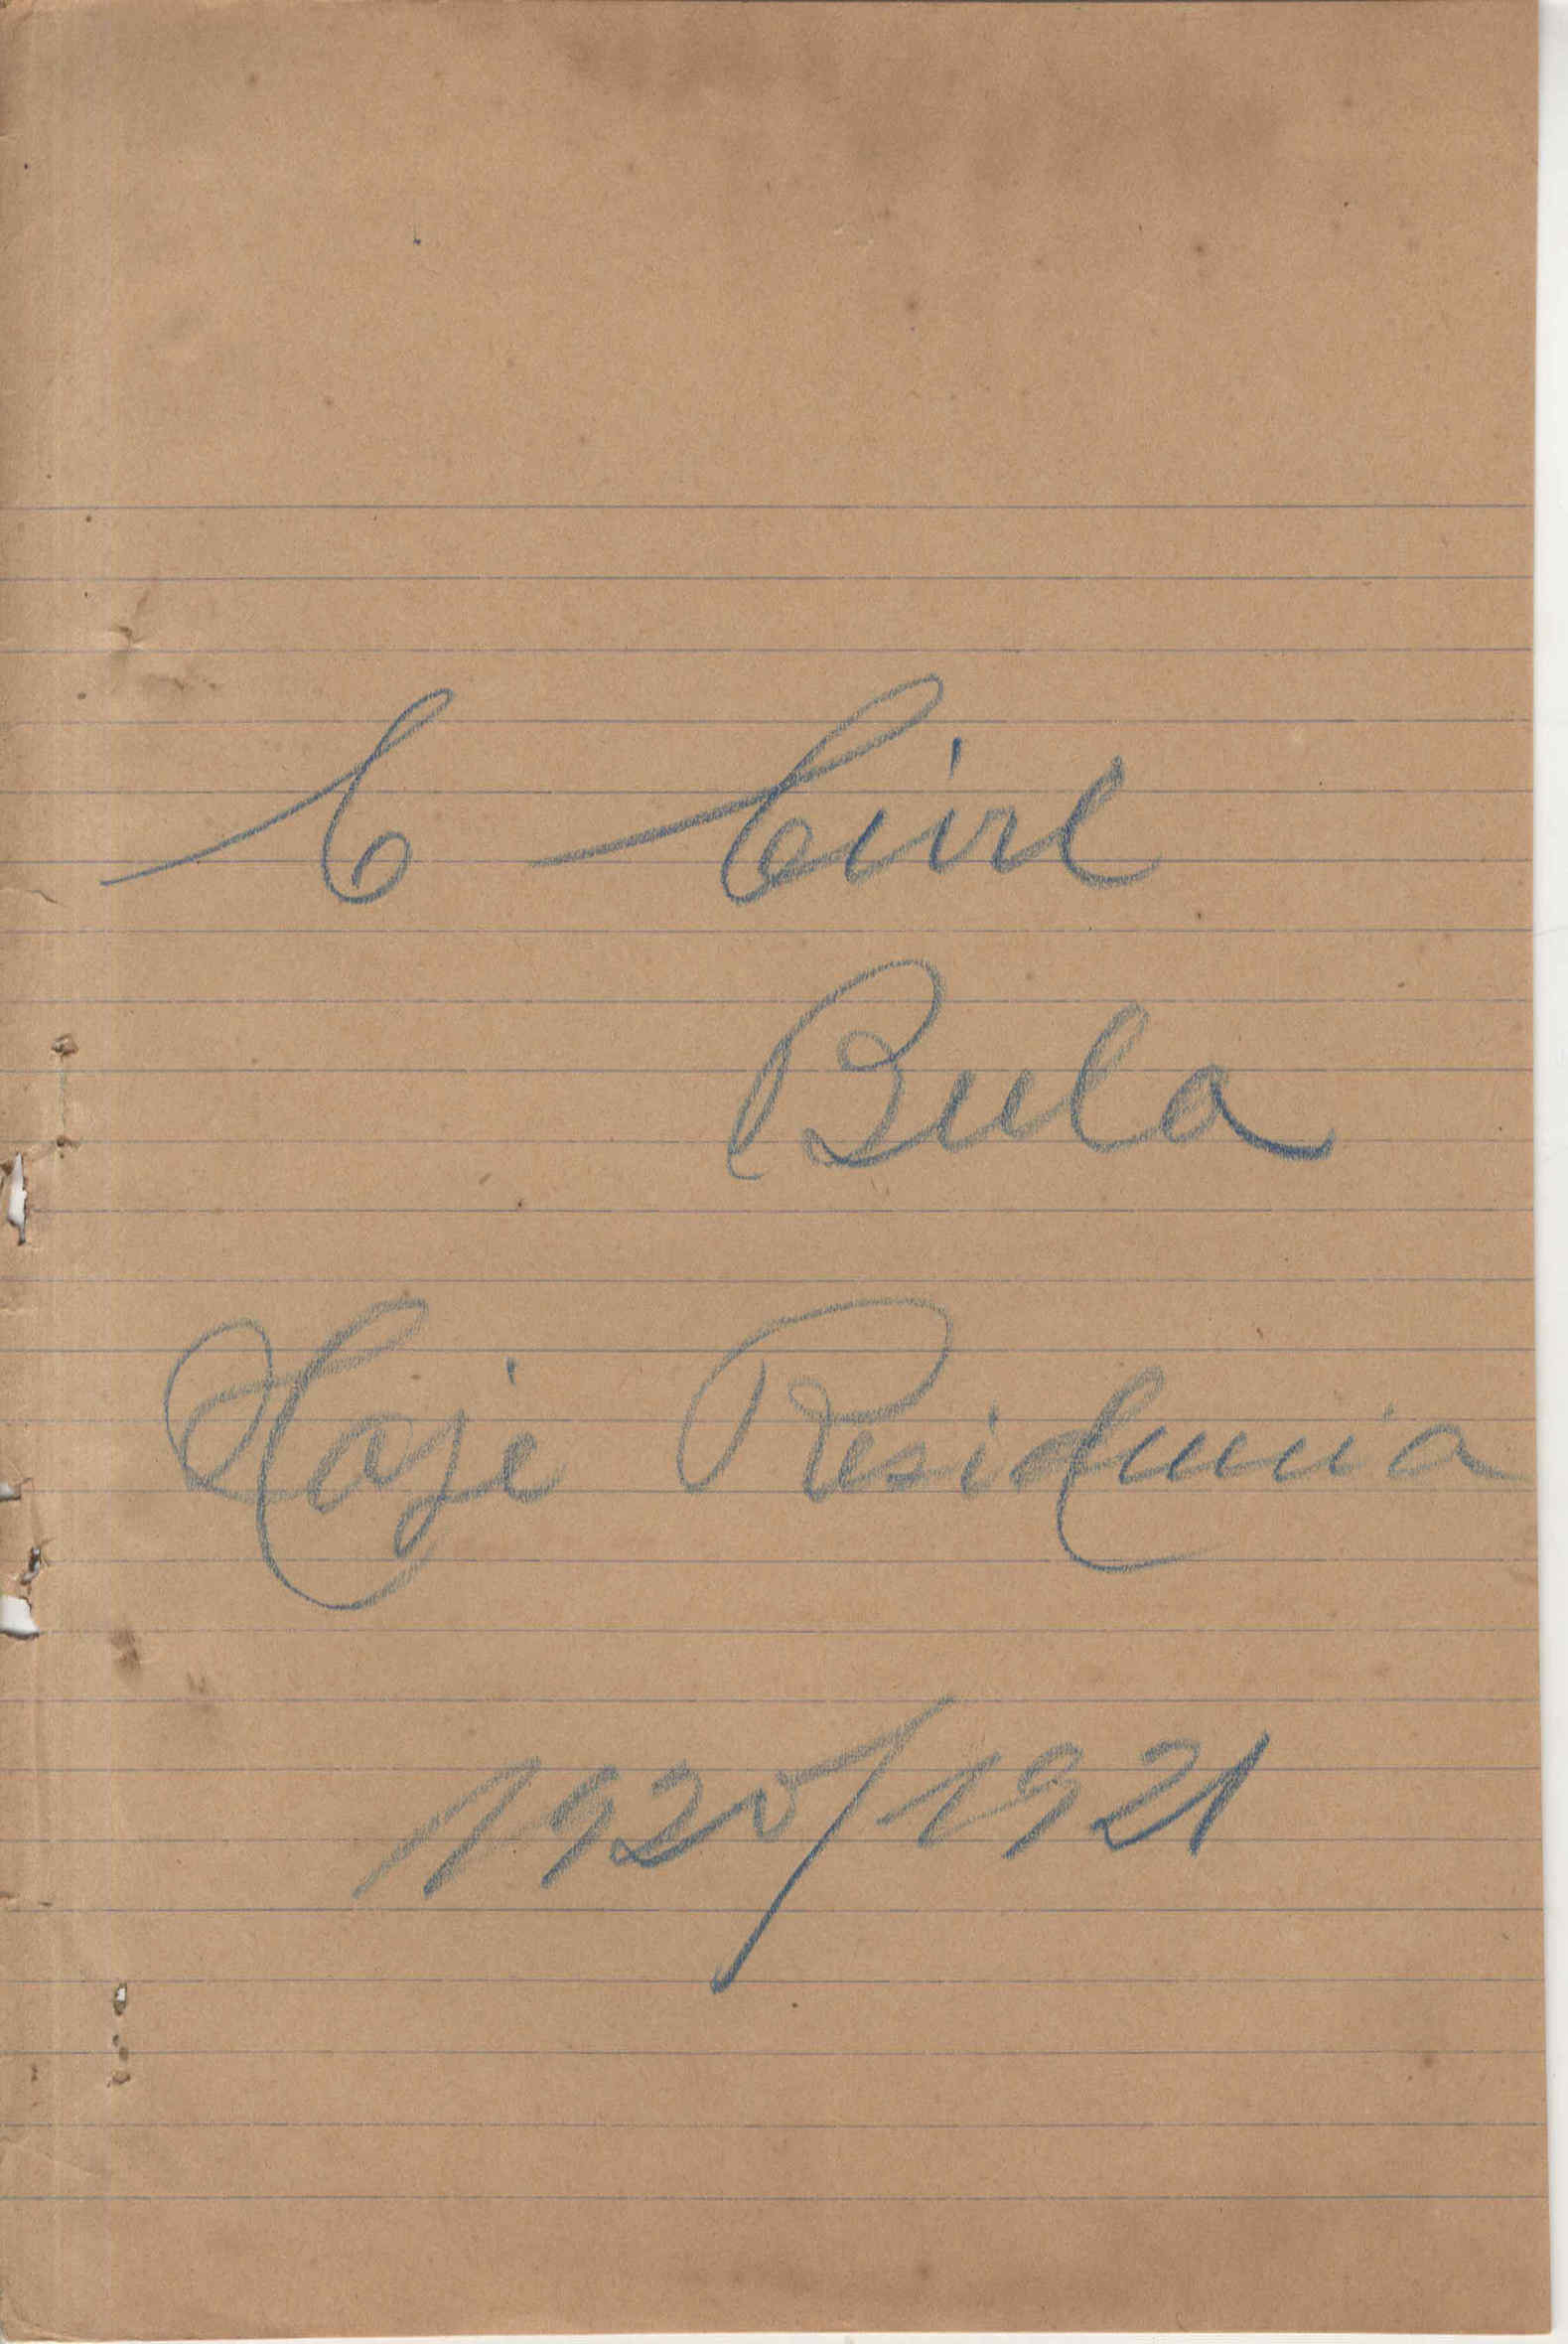 C Civil
Bula
Hoje Residencia
1920/1921